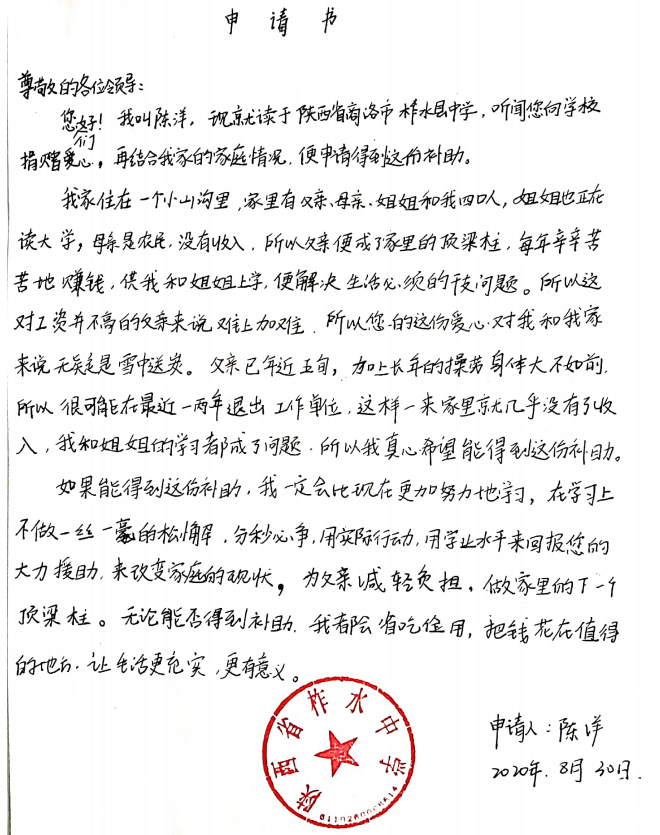 申请书
尊敬的各位领导：
您们好！我叫陈洋，现就读于陕西省商洛市柞水县中学，听闻您向学校
捐赠爱心，再结合我家的家庭情况，便申请得到这份补助。
我家住在一个小山沟里，家里有父亲、母亲、姐姐和我四口人，姐姐也正在
读大学，母亲是农民，没有收入，所以父亲便成了家里的顶梁柱，每年辛辛苦
苦地赚钱，供我和姐姐上学，便解决生活必须的开支问题。所以这
对工资并不高的父亲来说难上加难，所以您的这份爱心对我和我家
来说无疑是雪中送炭。父亲已年近五旬，加上长年的操劳身体大不如前，
所以很可能在最近一两年退出工作单位，这样一来家里就几乎没有了收
入，我和姐姐的学习都成了问题．所以我真心希望能得到这份补助。
如果能得到这份补助，我一定会比现在更加努力地学习，在学习上
不做一丝一毫的松懈，分秒必争，用实际行动，用学业水平来回报您的
大力援助，来改变家庭的现状，为父亲减轻负担，做家里的下一个
顶梁柱。无论能否得到补助，我都会省吃俭用，把钱花在值得
的地方，让生活更充实，更有意义。
陕西省柞水中学
申请人：陈洋
2020年8月30日.